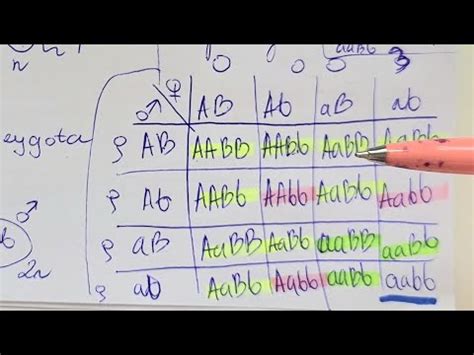 n aaBb
♀
♂ AB Ab aB ab
zygota ♀ AB AABB AABb AaBB AaBb
♂ ♀ Ab AABb AAbb AaBb Aabb
♀ aB AaBB AaBb aaBB aaBb
2n ♀ ab AaBb Aabb aaBb aabb